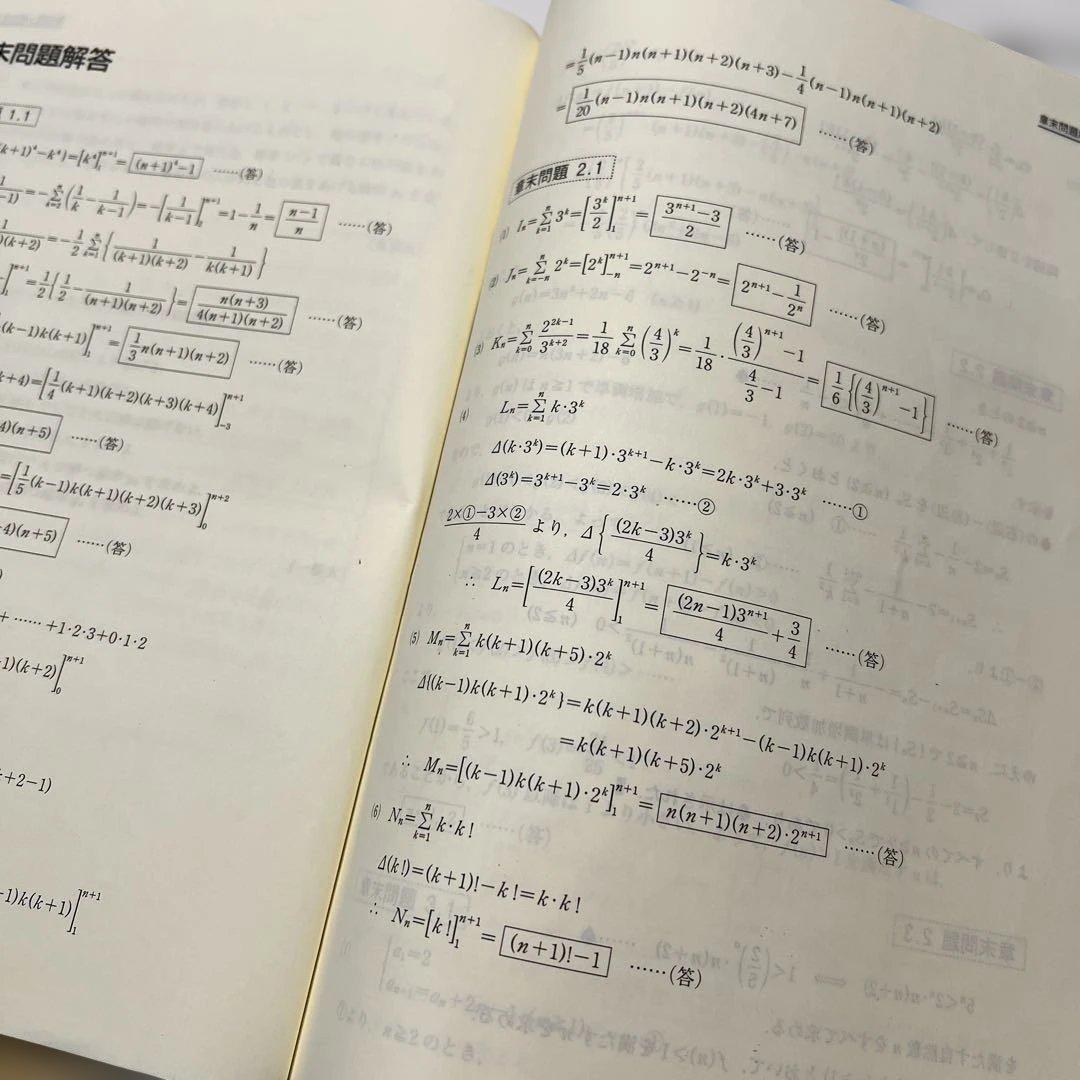 末問題解答
1.1
(k+1)⁴−k⁴)=[k⁴]₁ⁿ⁺¹=(n+1)⁴−1 ……(答)
1/−1)=−Σ_{k=2}^{n}(1/k−1/(k−1))=−[1/(k−1)]₂ⁿ⁺¹=1−1/n=(n−1)/n ……(答)
)(k+2)=−1/2 Σ_{k=1}^{n}{1/((k+1)(k+2))−1/(k(k+1))}
]₁ⁿ⁺¹=1/2{1/2−1/((n+1)(n+2))}=n(n+3)/(4(n+1)(n+2)) ……(答)
(k−1)k(k+1)]₁ⁿ⁺¹=1/3 n(n+1)(n+2) ……(答)
k+4)=[1/4(k+1)(k+2)(k+3)(k+4)]₋₃ⁿ⁺¹
4)(n+5) ……(答)
=[1/5(k−1)k(k+1)(k+2)(k+3)]₀ⁿ⁺²
+4)(n+5) ……(答)
)
+ …… +1·2·3+0·1·2
+1)(k+2)]₀ⁿ⁺¹
+2−1)
−1)k(k+1)]₁ⁿ⁺¹
章末問題
=1/5(n−1)n(n+1)(n+2)(n+3)−1/4(n−1)n(n+1)(n+2)
=1/20(n−1)n(n+1)(n+2)(4n+7) ……(答)
章末問題 2.1
(1) Iₙ=Σ_{k=1}^{n}3ᵏ=[3ᵏ/2]₁ⁿ⁺¹=(3ⁿ⁺¹−3)/2 ……(答)
(2) Jₙ=Σ_{k=−n}^{n}2ᵏ=[2ᵏ]₋ₙⁿ⁺¹=2ⁿ⁺¹−2⁻ⁿ=2ⁿ⁺¹−1/2ⁿ ……(答)
(3) Kₙ=Σ_{k=0}^{n}2²ᵏ⁻¹/3ᵏ⁺²=1/18 Σ_{k=0}^{n}(4/3)ᵏ=1/18·((4/3)ⁿ⁺¹−1)/(4/3−1)=1/6{(4/3)ⁿ⁺¹−1} ……(答)
(4) Lₙ=Σ_{k=1}^{n}k·3ᵏ
Δ(k·3ᵏ)=(k+1)·3ᵏ⁺¹−k·3ᵏ=2k·3ᵏ+3·3ᵏ ……①
Δ(3ᵏ)=3ᵏ⁺¹−3ᵏ=2·3ᵏ ……②
(2×①−3×②)/4 より, Δ{(2k−3)3ᵏ/4}=k·3ᵏ
∴ Lₙ=[(2k−3)3ᵏ/4]₁ⁿ⁺¹=(2n−1)3ⁿ⁺¹/4+3/4 ……(答)
(5) Mₙ=Σ_{k=1}^{n}k(k+1)(k+5)·2ᵏ
Δ{(k−1)k(k+1)·2ᵏ}=k(k+1)(k+2)·2ᵏ⁺¹−(k−1)k(k+1)·2ᵏ
=k(k+1)(k+5)·2ᵏ
∴ Mₙ=[(k−1)k(k+1)·2ᵏ]₁ⁿ⁺¹=n(n+1)(n+2)·2ⁿ⁺¹ ……(答)
(6) Nₙ=Σ_{k=1}^{n}k·k!
Δ(k!)=(k+1)!−k!=k·k!
∴ Nₙ=[k!]₁ⁿ⁺¹=(n+1)!−1 ……(答)